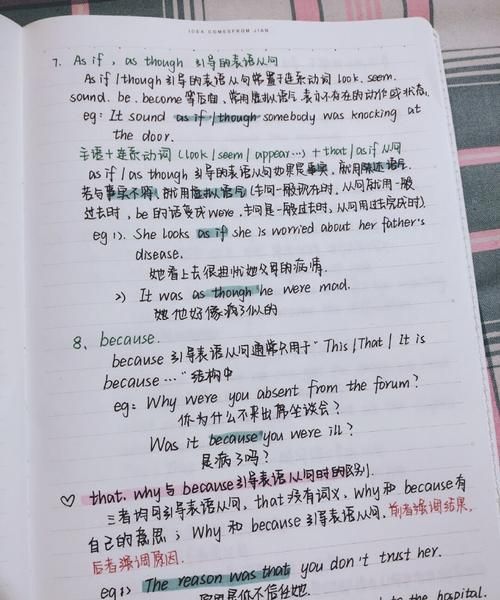 IDEA COMESFROM JIAN
7. As if, as though 引导的表语从句
As if / though 引导的表语从句常置于连系动词 look. seem.
sound. be. become 等后面, 常用虚拟语气, 表示不存在的动作或状态.
eg: It sound as if / though somebody was knocking at
the door.
主语+连系动词 (look / seem / appear …) + that / as if 从句
as if / as though 引导的表语从句如果是事实, 就用陈述语气.
若与事实不符, 就用虚拟语气 (主句一般现在时, 从句就用一般
过去时, be 的话变成 were, 主句是一般过去时, 从句用过去完成时).
eg 1). She looks as if she is worried about her father's
disease.
她看上去很担忧她父母的病情.
2) It was as though he were mad.
她他好像疯了似的
8、because.
because 引导表语从句通常只用于 "This / That / It is
because …" 结构中
eg: Why were you absent from the forum?
你为什么不来出席坐谈会?
Was it because you were ill?
是病了吗?
♡ that. why 与 because 引导表语从句时的区别.
三者均可引导表语从句, that 没有词义, why 和 because 有
自己的意思; Why 和 because 引导表语从句, 前者强调结果,
后者强调原因.
eg 1) The reason was that you don't trust her.
原因是你不信任她.
to the hospital.